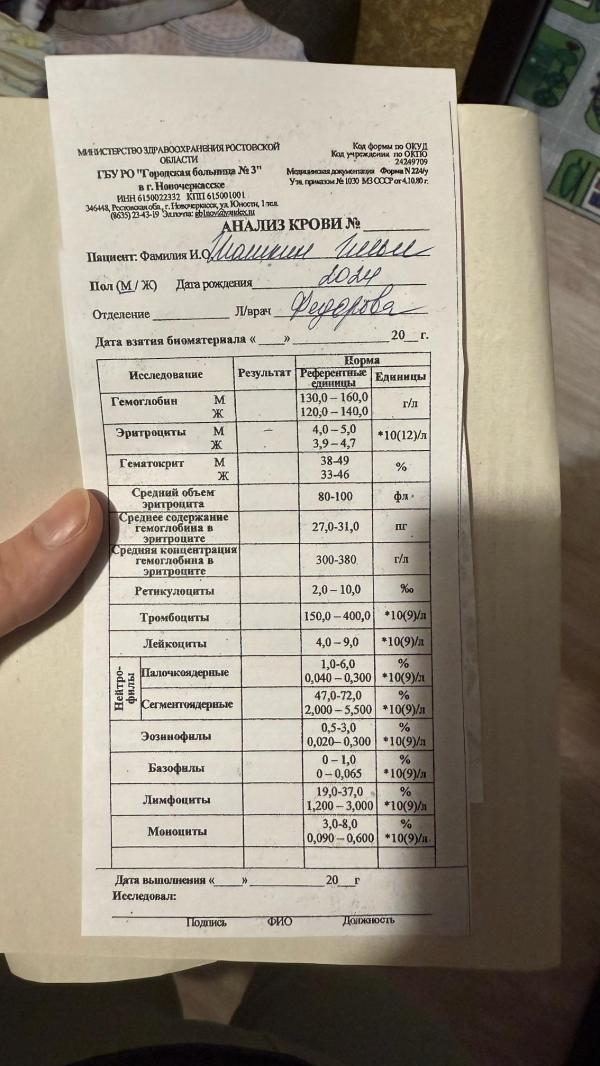 МИНИСТЕРСТВО ЗДРАВООХРАНЕНИЯ РОСТОВСКОЙ
ОБЛАСТИ
ГБУ РО "Городская больница № 3"
в г. Новочеркасске
ИНН 6150022332 КПП 615001001
346448, Ростовская обл., г. Новочеркасск, ул. Юности, 1 тел.
(8635) 23-43-19 Эл.почта: gb1nov@yandex.ru
Код формы по ОКУД
Код учреждения по ОКПО
24249709
Медицинская документация Форма N 224/у
Утв. приказом № 1030 МЗ СССР от 4.10.80 г.
АНАЛИЗ КРОВИ № ______
Пациент: Фамилия И.О. Шашкин Илья
Пол (М / Ж) Дата рождения 2024
Отделение __________ Л/врач Федорова
Дата взятия биоматериала «____» ____________ 20__ г.
Исследование Результат Норма
Референтные единицы Единицы
Гемоглобин М 130,0 – 160,0 г/л
Ж 120,0 – 140,0
Эритроциты М – 4,0 – 5,0 *10(12)/л
Ж 3,9 – 4,7
Гематокрит М 38-49 %
Ж 33-46
Средний объем эритроцита 80-100 фл
Среднее содержание гемоглобина в эритроците 27,0-31,0 пг
Средняя концентрация гемоглобина в эритроците 300-380 г/л
Ретикулоциты 2,0 – 10,0 ‰
Тромбоциты 150,0 – 400,0 *10(9)/л
Лейкоциты 4,0 – 9,0 *10(9)/л
Нейтро-филы
Палочкоядерные 1,0-6,0 %
0,040 – 0,300 *10(9)/л
Сегментоядерные 47,0-72,0 %
2,000 – 5,500 *10(9)/л
Эозинофилы 0,5-3,0 %
0,020– 0,300 *10(9)/л
Базофилы 0 – 1,0 %
0 – 0,065 *10(9)/л
Лимфоциты 19,0-37,0 %
1,200 – 3,000 *10(9)/л
Моноциты 3,0-8,0 %
0,090 – 0,600 *10(9)/л
Дата выполнения «____» __________ 20__г
Исследовал:
Подпись ФИО Должность